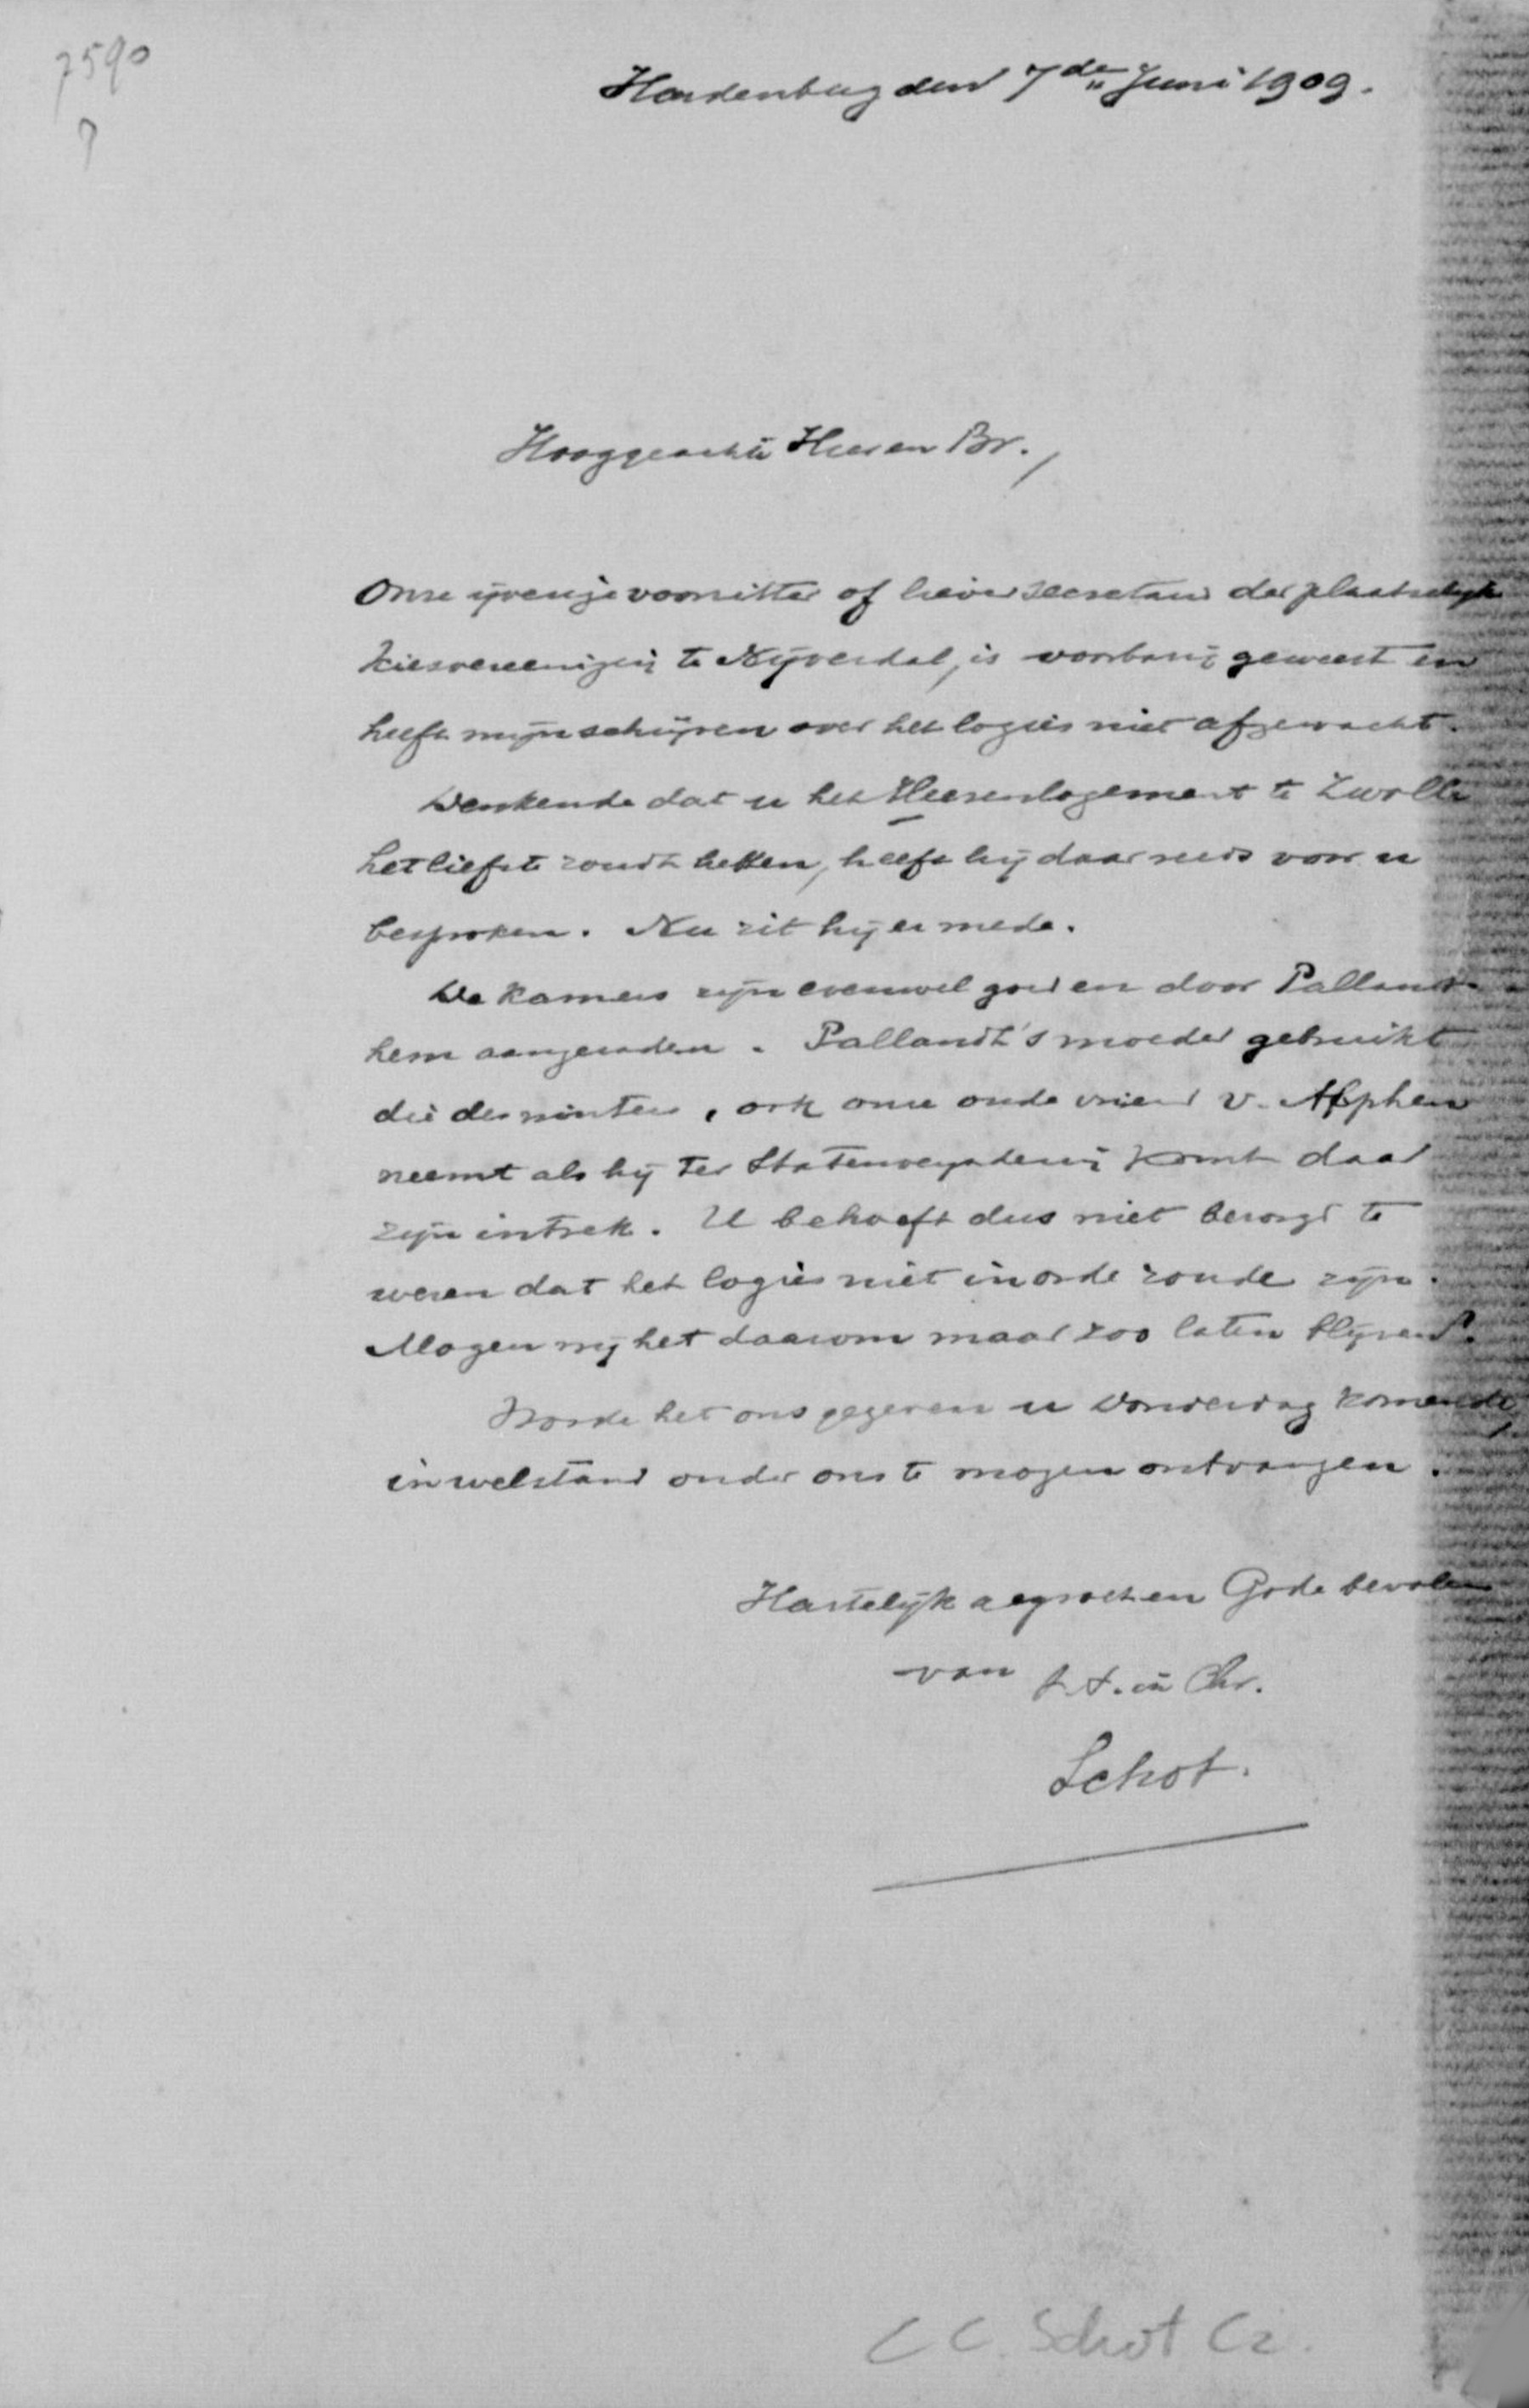 7590
Hardenberg den 7de Juni 1909.
Hooggeachte Heer en Br.,
Onze ijverige voorzitter of liever secretaris der plaatselijke
Kiesvereeniging te Nijverdal, is voorbarig geweest en
heeft mijn schrijven over het logies niet afgewacht.
Denkende dat u het Heerenlogement te Zwolle
het liefste zoudt hebben, heeft hij daar reeds voor u
besproken. Nu zit hij er mede.
De kamers zijn evenwel goed en door Pallandt
hem aangeraden. Pallandt's moeder gebruikt
die des winters, ook onze oude vriend v. Alphen
neemt als hij ter Statenvergadering komt daar
zijn intrek. U behoeft dus niet bezorgd te
wezen dat het logies niet in orde zoude zijn.
Mogen wij het daarom maar zoo laten blijven?
Worde het ons gegeven u Donderdag komende,
in welstand onder ons te mogen ontvangen.
Hartelijk gegroet en Gode bevolen
van t.t. in Chr.
Schot.
C C. Schot Cz.